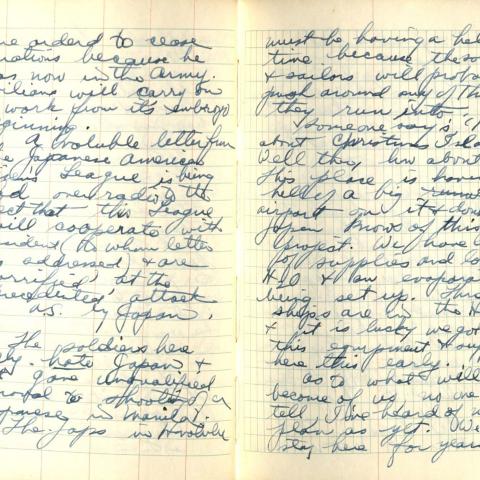 ne orderd to cease
rations because he
as now in the Army.
vilians will carry on
work from its embryo
ginning.
A voluble letter from
e Japanese American
izens League is being
d over radio to the
ect that this League
ill cooperate with
ident (to whom letter
addressed) & are
orrified at the
recedented attack
U.S. by Japan.
The soldiers here
hate Japan &
gave unqualified
roval to shooting of
panese in Manila.
The Japs in Honolulu
must be having a hell
time because the so
& sailors will probab
push around any of th
they run into.
Someone say's "
about Christmas Isla
Well they how about
This place is havin
hell of a big
airport on it &
Japan knows of this
project. We have
for supplies and
H2O & an evapora
being set up. Three
ships are in the H
& it is lucky we got
this equipment & sup
here this early.
as to what will
become of us, no one
tell I've heard of
plan as yet. We
stay here for years